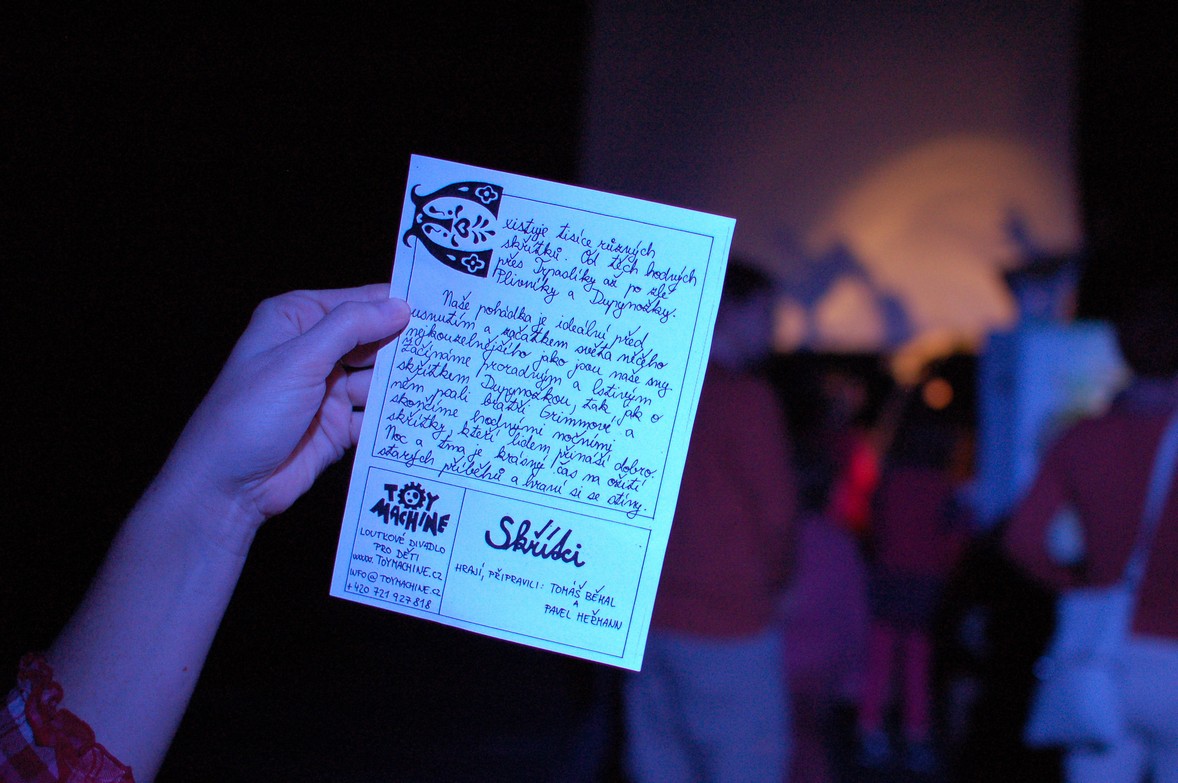 Existuje tisíce různých
skřítků. Od těch hodných
přes Trpaslíky až po zlé
Plivníky a Dupynožky.
Naše pohádka je ideální před
usnutím a začátkem světa něčeho
nejkouzelnějšího jako jsou naše sny.
Začínáme proradným a lstivým
skřítkem Dupynožkou, tak jak o
něm psali bratři Grimmové a
skončíme hodnými nočními
skřítky, kteří lidem přináší dobro.
Noc a tma je krásný čas na ožití
starých příběhů a hraní si se stíny.
TOY
MACHINE
LOUTKOVÉ DIVADLO
PRO DĚTI
www.TOYMACHINE.CZ
INFO@TOYMACHINE.CZ
+420 721 927 818
Skřítci
HRAJÍ, PŘIPRAVILI: TOMÁŠ BĚHAL
A
PAVEL HEŘMANN